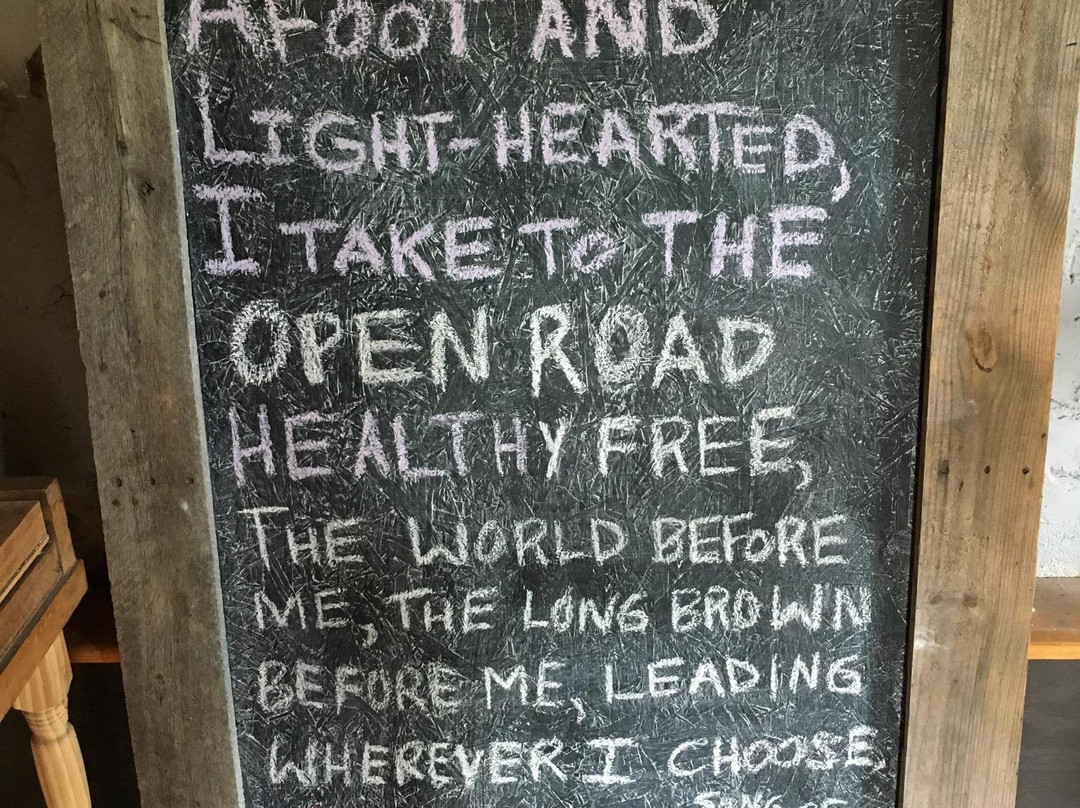 AFOOT AND
LIGHT-HEARTED,
I TAKE TO THE
OPEN ROAD
HEALTHY FREE,
THE WORLD BEFORE
ME, THE LONG BROWN
BEFORE ME, LEADING
WHEREVER I CHOOSE,
SONG OF